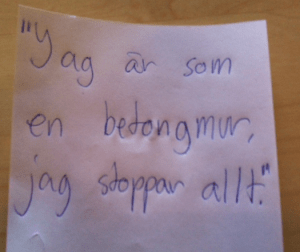 "Jag är som
en betongmur,
jag stoppar allt."